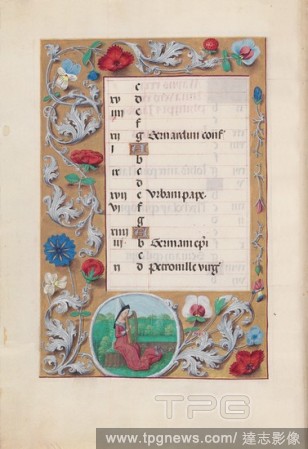 c
xv d
iiii e
f
xii g Bernardini conf
i A
b
ix c
d
xvii e Urbani pape
vi f
g
xiiii A
iii b Germani epi
c
xi d Petronille virg
TPG
www.tpgnews.com/ 達志影像